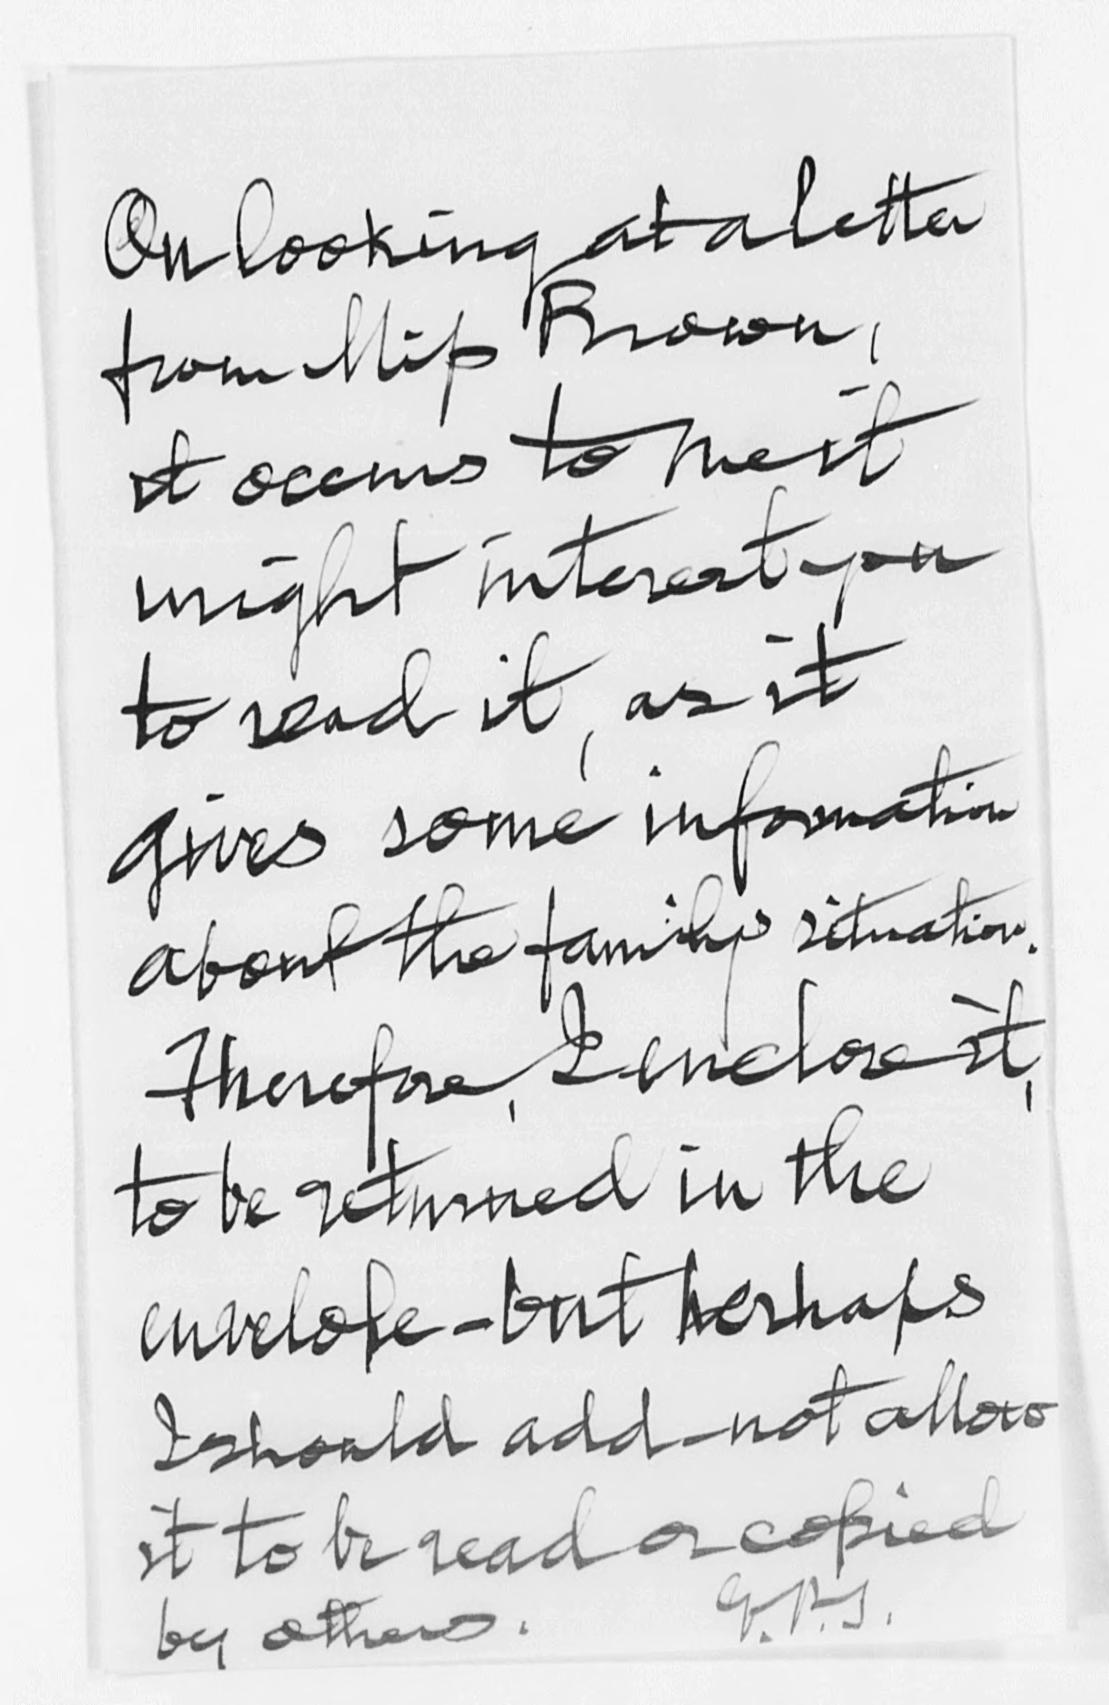 On looking at a letter
from Miss Brown,
it occurs to me it
might interest you
to read it, as it
gives some information
about the family's situation.
Therefore, I enclose it,
to be returned in the
envelope - but perhaps
I should add - not allow
it to be read or copied
by others.